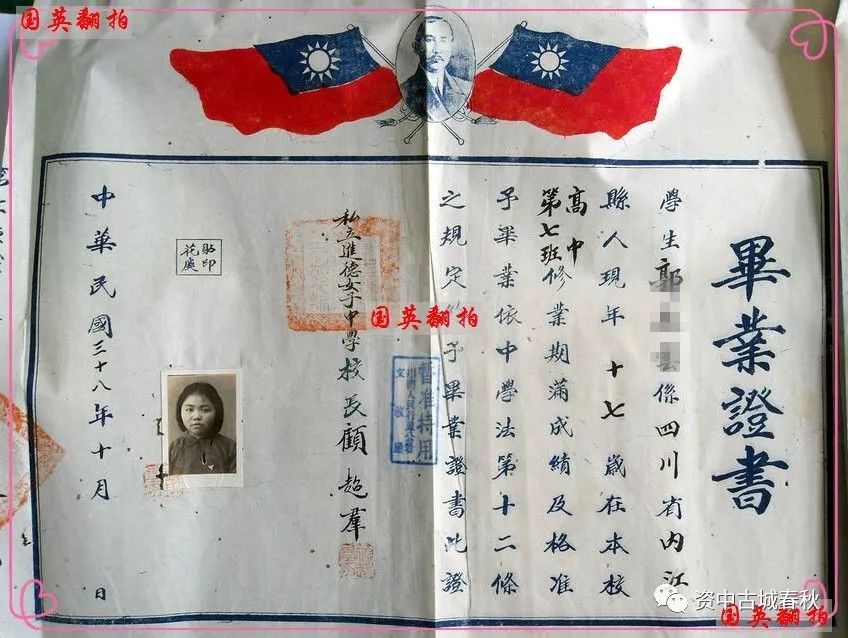 国英翻拍
畢業證書
學生郭 係四川省内江
縣人現年十七歲在本校
高中第七班修業期滿成績及格准
予畢業依中學法第十二條
之規定 予畢業證書此證
国英翻拍
暫准持用
文教廳
私立進德女子中學校長顧超羣
貼印花處
中華民國三十八年十月 日
资中古城春秋
国英翻拍